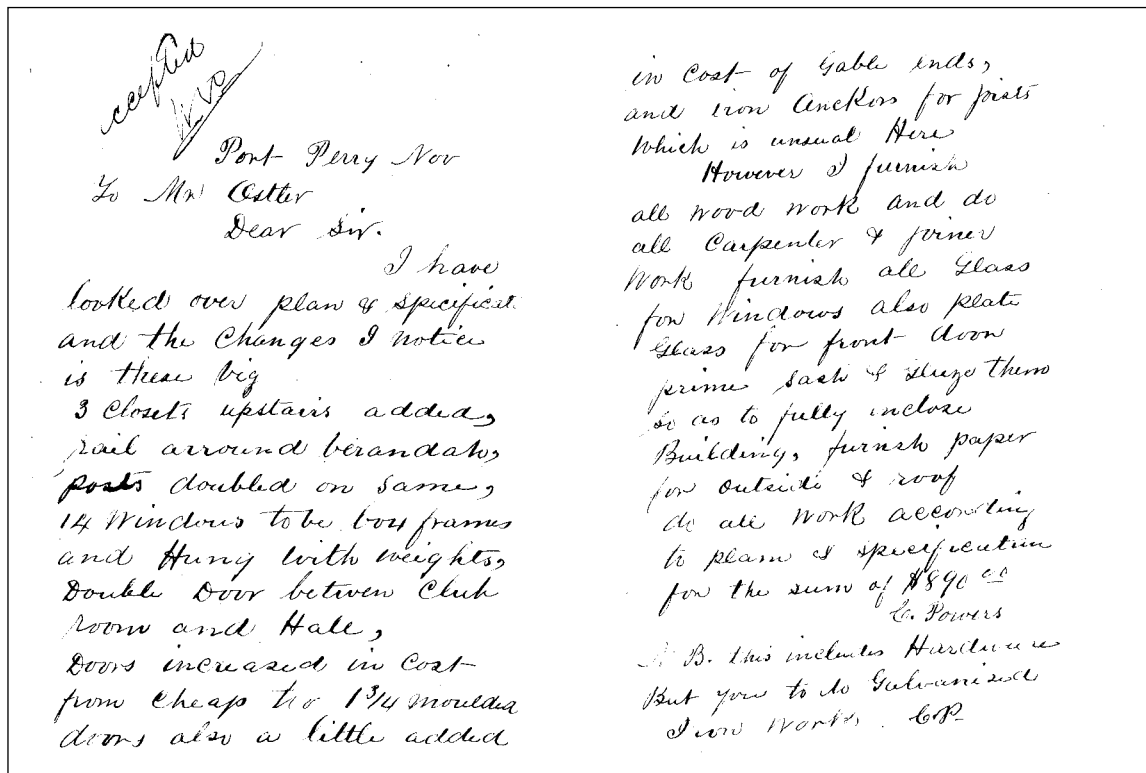 ccepted
Port Perry Nov
To Mr Ostler
Dear Sir.
I have
looked over plan & specificat
and the Changes I notice
is these big
3 Closets upstairs added,
rail arround berandah,
posts doubled on same,
14 Windows to be box frames
and Hung with weights,
Double Door betwen Club
room and Hall,
Doors increased in Cost
from Cheap to 1 3/4 moulded
doors also a little added
in Cost of Gable ends,
and iron Anckors for joists
which is unsual Here
However I furnish
all wood work and do
all Carpenter & joiner
Work furnish all Glass
for Windows also plate
Glass for front door
prime sash & them
so as to fully inclose
Building, furnish paper
for outside & roof
do all work according
to plan & specification
for the sum of $890 00
C. Powers
N B. this includes Hardware
But you to do Galvanised
Iron Works. CP